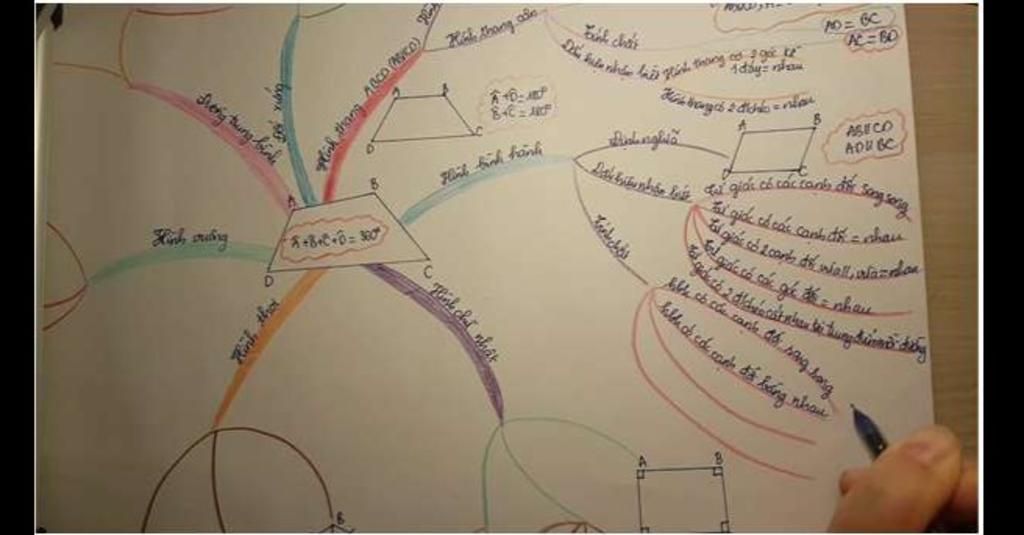 AD = BC
AC = BD
Hình thang cân
Tính chất
Dấu hiệu nhận biết
Hình thang có 2 góc kề
1 đáy = nhau
Hình thang có 2 đ/chéo = nhau
Hình thang ABCD (AB//CD)
A B
D C
Â + D̂ = 180°
B̂ + Ĉ = 180°
Đường trung bình
Đối xứng
Hình bình hành
Định nghĩa
A B
D C
AB//CD
AD//BC
Dấu hiệu nhận biết
Tứ giác có các cạnh đối song song
Tứ giác có các cạnh đối = nhau
Tứ giác có 2 cạnh đối vừa //, vừa = nhau
Tứ giác có các góc đối = nhau
Tứ giác có 2 đ/chéo cắt nhau tại trung điểm mỗi đường
Tính chất
hbh có các cạnh đối song song
hbh có các cạnh đối bằng nhau
A B
Â + B̂ + Ĉ + D̂ = 360°
D C
Hình vuông
Hình thoi
Hình chữ nhật
A B
B